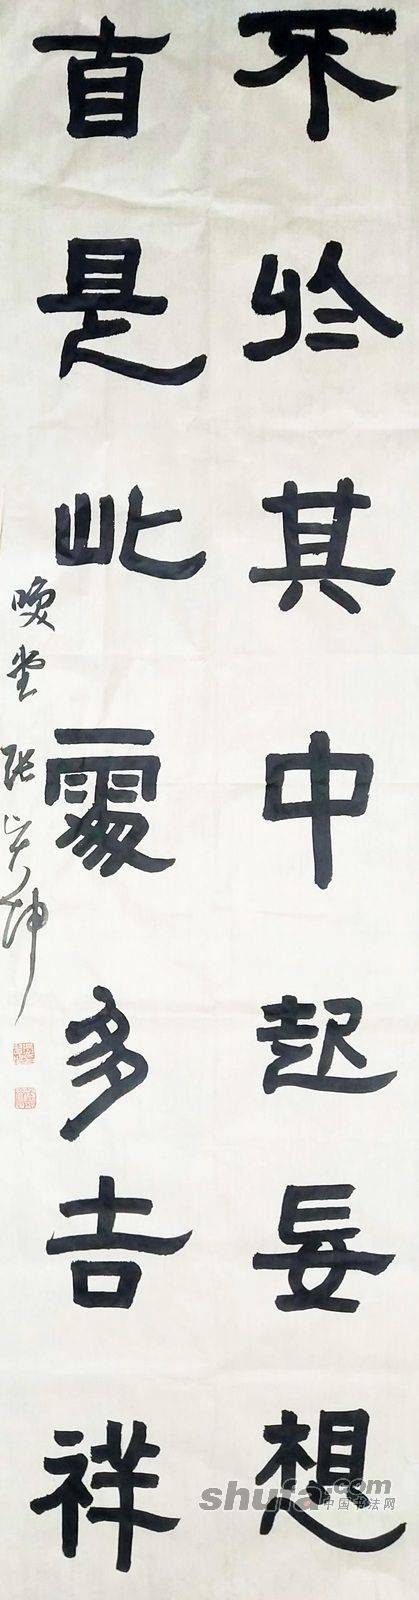 不於其中起妄想
直是此處多吉祥
暖堂 张
shufa.com
中国书法网